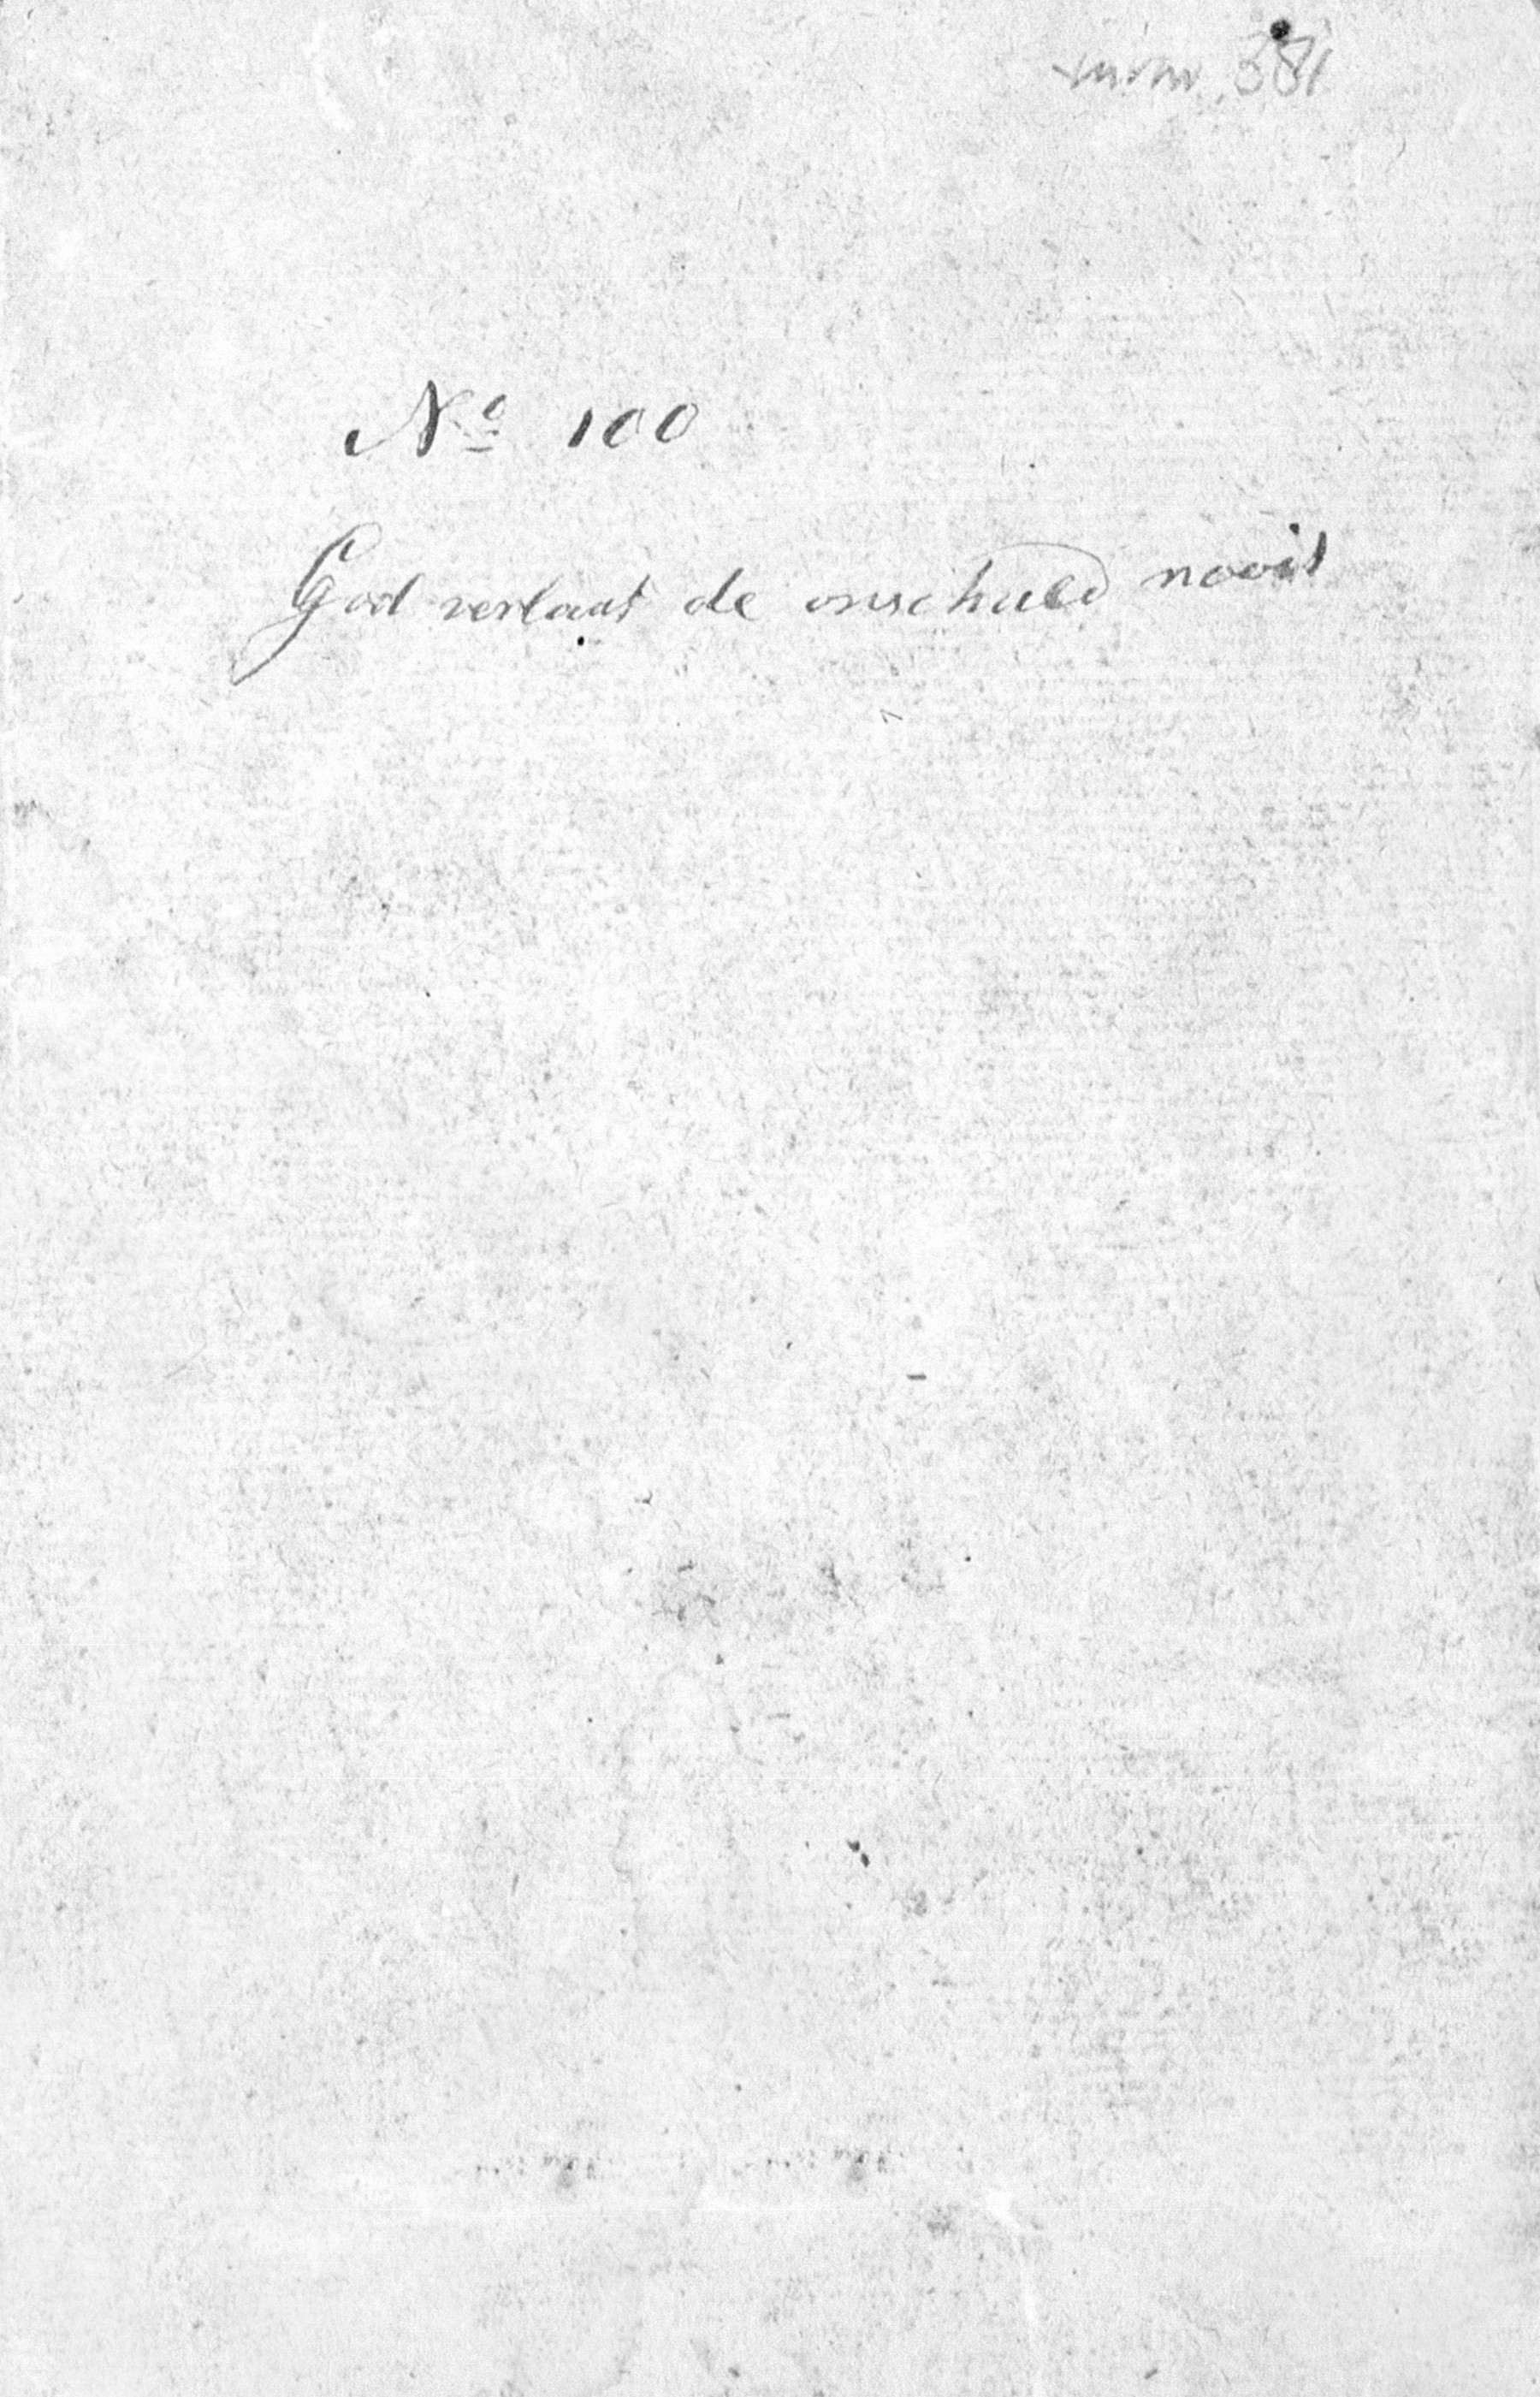 381
Nº 100
God verlaat de onschuld nooit